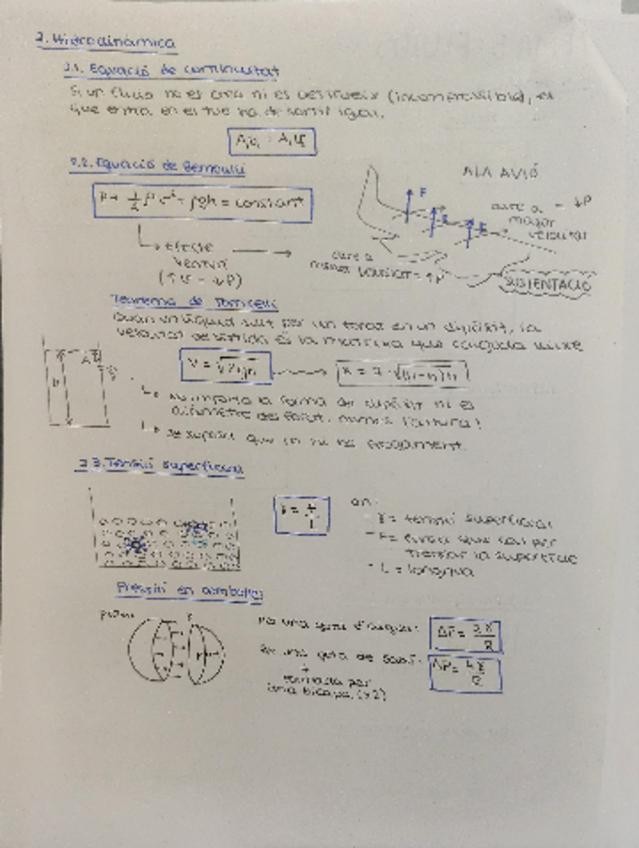 2. Hidrodinàmica
2.1. Equació de continuïtat
Si un fluid no es crea ni es destrueix (incompressible), el
que entra en el tub ha de sortir igual.
A₁v₁ = A₂v₂
2.2. Equació de Bernoulli
P + 1/2 ρv² + ρgh = constant
ALA AVIÓ
F
F
F
aire a
major
velocitat
= ↓P
aire a
menor velocitat = ↑P
SUSTENTACIÓ
Efecte
Venturi
(↑v - ↓P)
Teorema de Torricelli
Quan un líquid surt per un forat en un dipòsit, la
velocitat de sortida és la mateixa que caiguda lliure
V = √2gh
no importa la forma del dipòsit ni el
diàmetre del forat, només l'altura!
se suposa que no hi ha fregament.
2.3. Tensió superficial
on:
γ = tensió superficial
F = força que cal per
trencar la superfície
L = longitud
Pressió en bombolles
Per una gota d'aigua:
Per una gota de sabó:
formada per
una bicapa (x2)